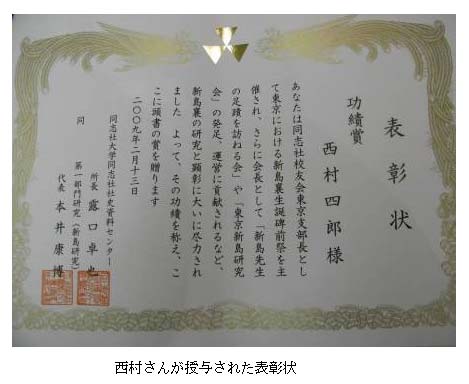 表彰状
功績賞
西村四郎様
あなたは同志社校友会東京支部長とし
て東京における新島襄生誕碑前祭を主
催され、さらに会長として「新島先生
の足跡を訪ねる会」や「東京新島研究
会」の発足、運営に貢献されるなど、
新島襄の研究と顕彰に大いに尽力され
ました よって、その功績を称え、こ
こに頭書の賞を贈ります
二〇〇九年二月十三日
同志社大学同志社社史資料センター
所長 露口卓也
同 第一部門研究(新島研究)
代表 本井康博
西村さんが授与された表彰状